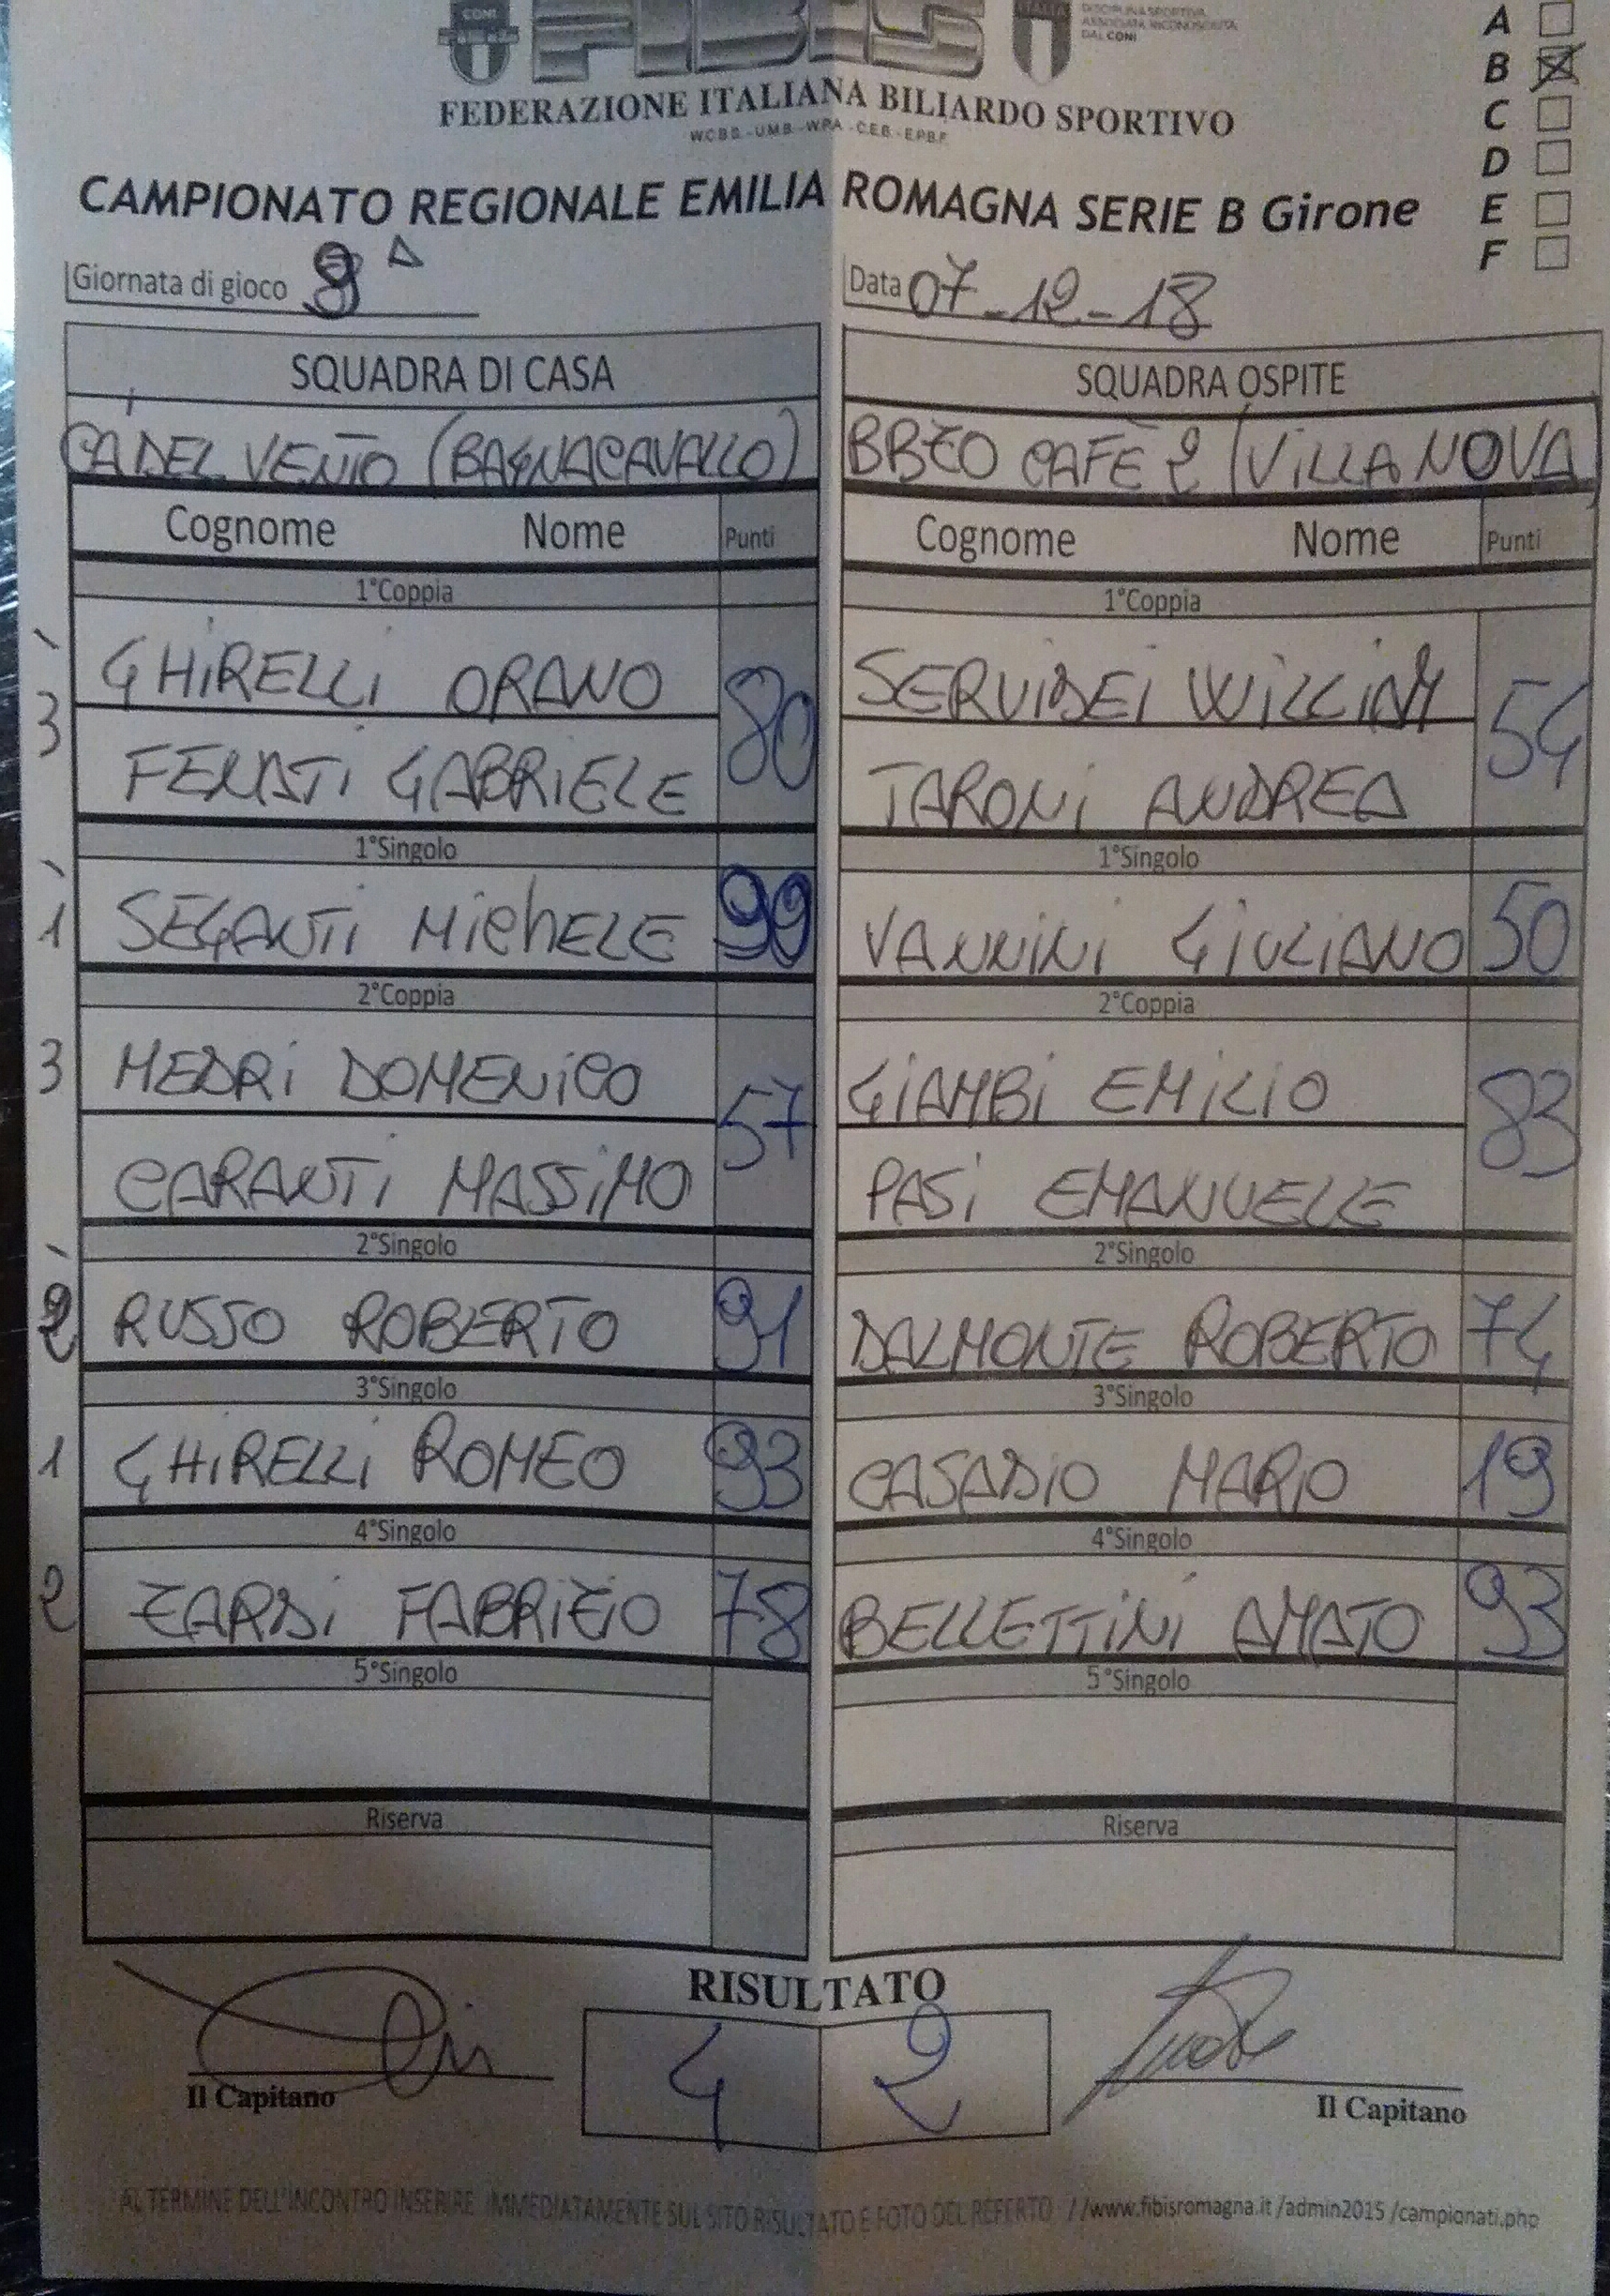 CONI
FIBIS
ITALIA
DISCIPLINA SPORTIVA
ASSOCIATA RICONOSCIUTA
DAL CONI
FEDERAZIONE ITALIANA BILIARDO SPORTIVO
W.C.B.S.-U.M.B.-W.P.A.-C.E.B.-E.P.B.F.
A
B
C
D
E
F
CAMPIONATO REGIONALE EMILIA ROMAGNA SERIE B Girone
Giornata di gioco Data 07-12-18
SQUADRA DI CASA SQUADRA OSPITE
CÁ DEL VENTO (BAGNACAVALLO) BBZO CAFÈ 2 (VILLANOVA)
Cognome Nome Punti Cognome Nome Punti
1°Coppia 1°Coppia
GHIRELLI ORANO 80 SERVIDEI WILLIAM 54
3 FENATI GABRIELE TARONI ANDREA
1°Singolo 1°Singolo
1 SEGANTI MICHELE 99 VANNINI GIULIANO 50
2°Coppia 2°Coppia
3 MEDRI DOMENICO 57 GIAMBI EMILIO 83
CARANTI MASSIMO PASI EMANUELE
2°Singolo 2°Singolo
2 RUSSO ROBERTO 91 DALMONTE ROBERTO 74
3°Singolo 3°Singolo
1 GHIRELLI ROMEO 93 CASADIO MARIO 19
4°Singolo 4°Singolo
2 ZARDI FABRIZIO 78 BELLETTINI AMATO 93
5°Singolo 5°Singolo
Riserva Riserva
RISULTATO
4 2
Il Capitano Il Capitano
AL TERMINE DELL'INCONTRO INSERIRE IMMEDIATAMENTE SUL SITO RISULTATO E FOTO DEL REFERTO //www.fibisromagna.it/admin2015/campionati.php